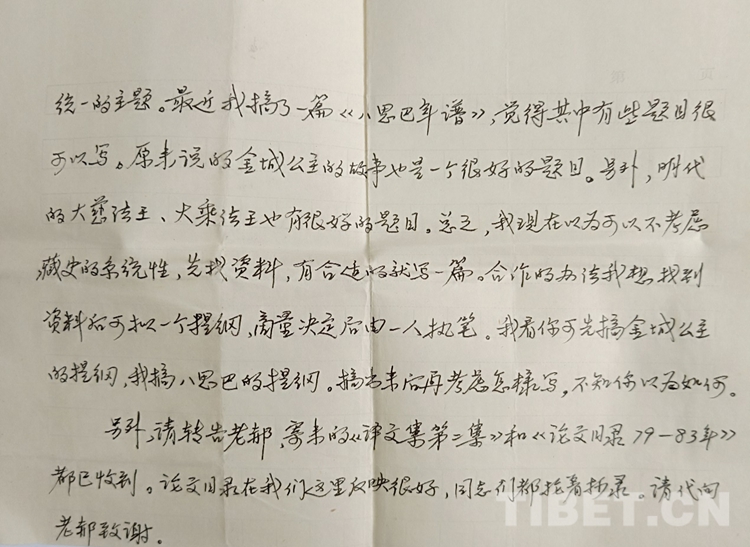 第 页
统一的主题。最近我搞了一篇《八思巴年谱》,觉得其中有些题目很
可以写。原来说的金城公主的故事也是一个很好的题目。另外,明代
的大慈法王、大乘法王也有很好的题目。总之,我现在以为可以不考虑
藏史的系统性,先找资料,有合适的就写一篇。合作的办法我想找到
资料后可拟一个提纲,商量决定后由一人执笔。我看你可先搞金城公主
的提纲,我搞八思巴的提纲。搞出来后再考虑怎样写,不知你以为如何。
另外,请转告老郝,寄来的《译文集第二集》和《论文目录79-83年》
都已收到。论文目录在我们这里反映很好,同志们都抢着抄录。请代向
老郝致谢。
TIBET.CN